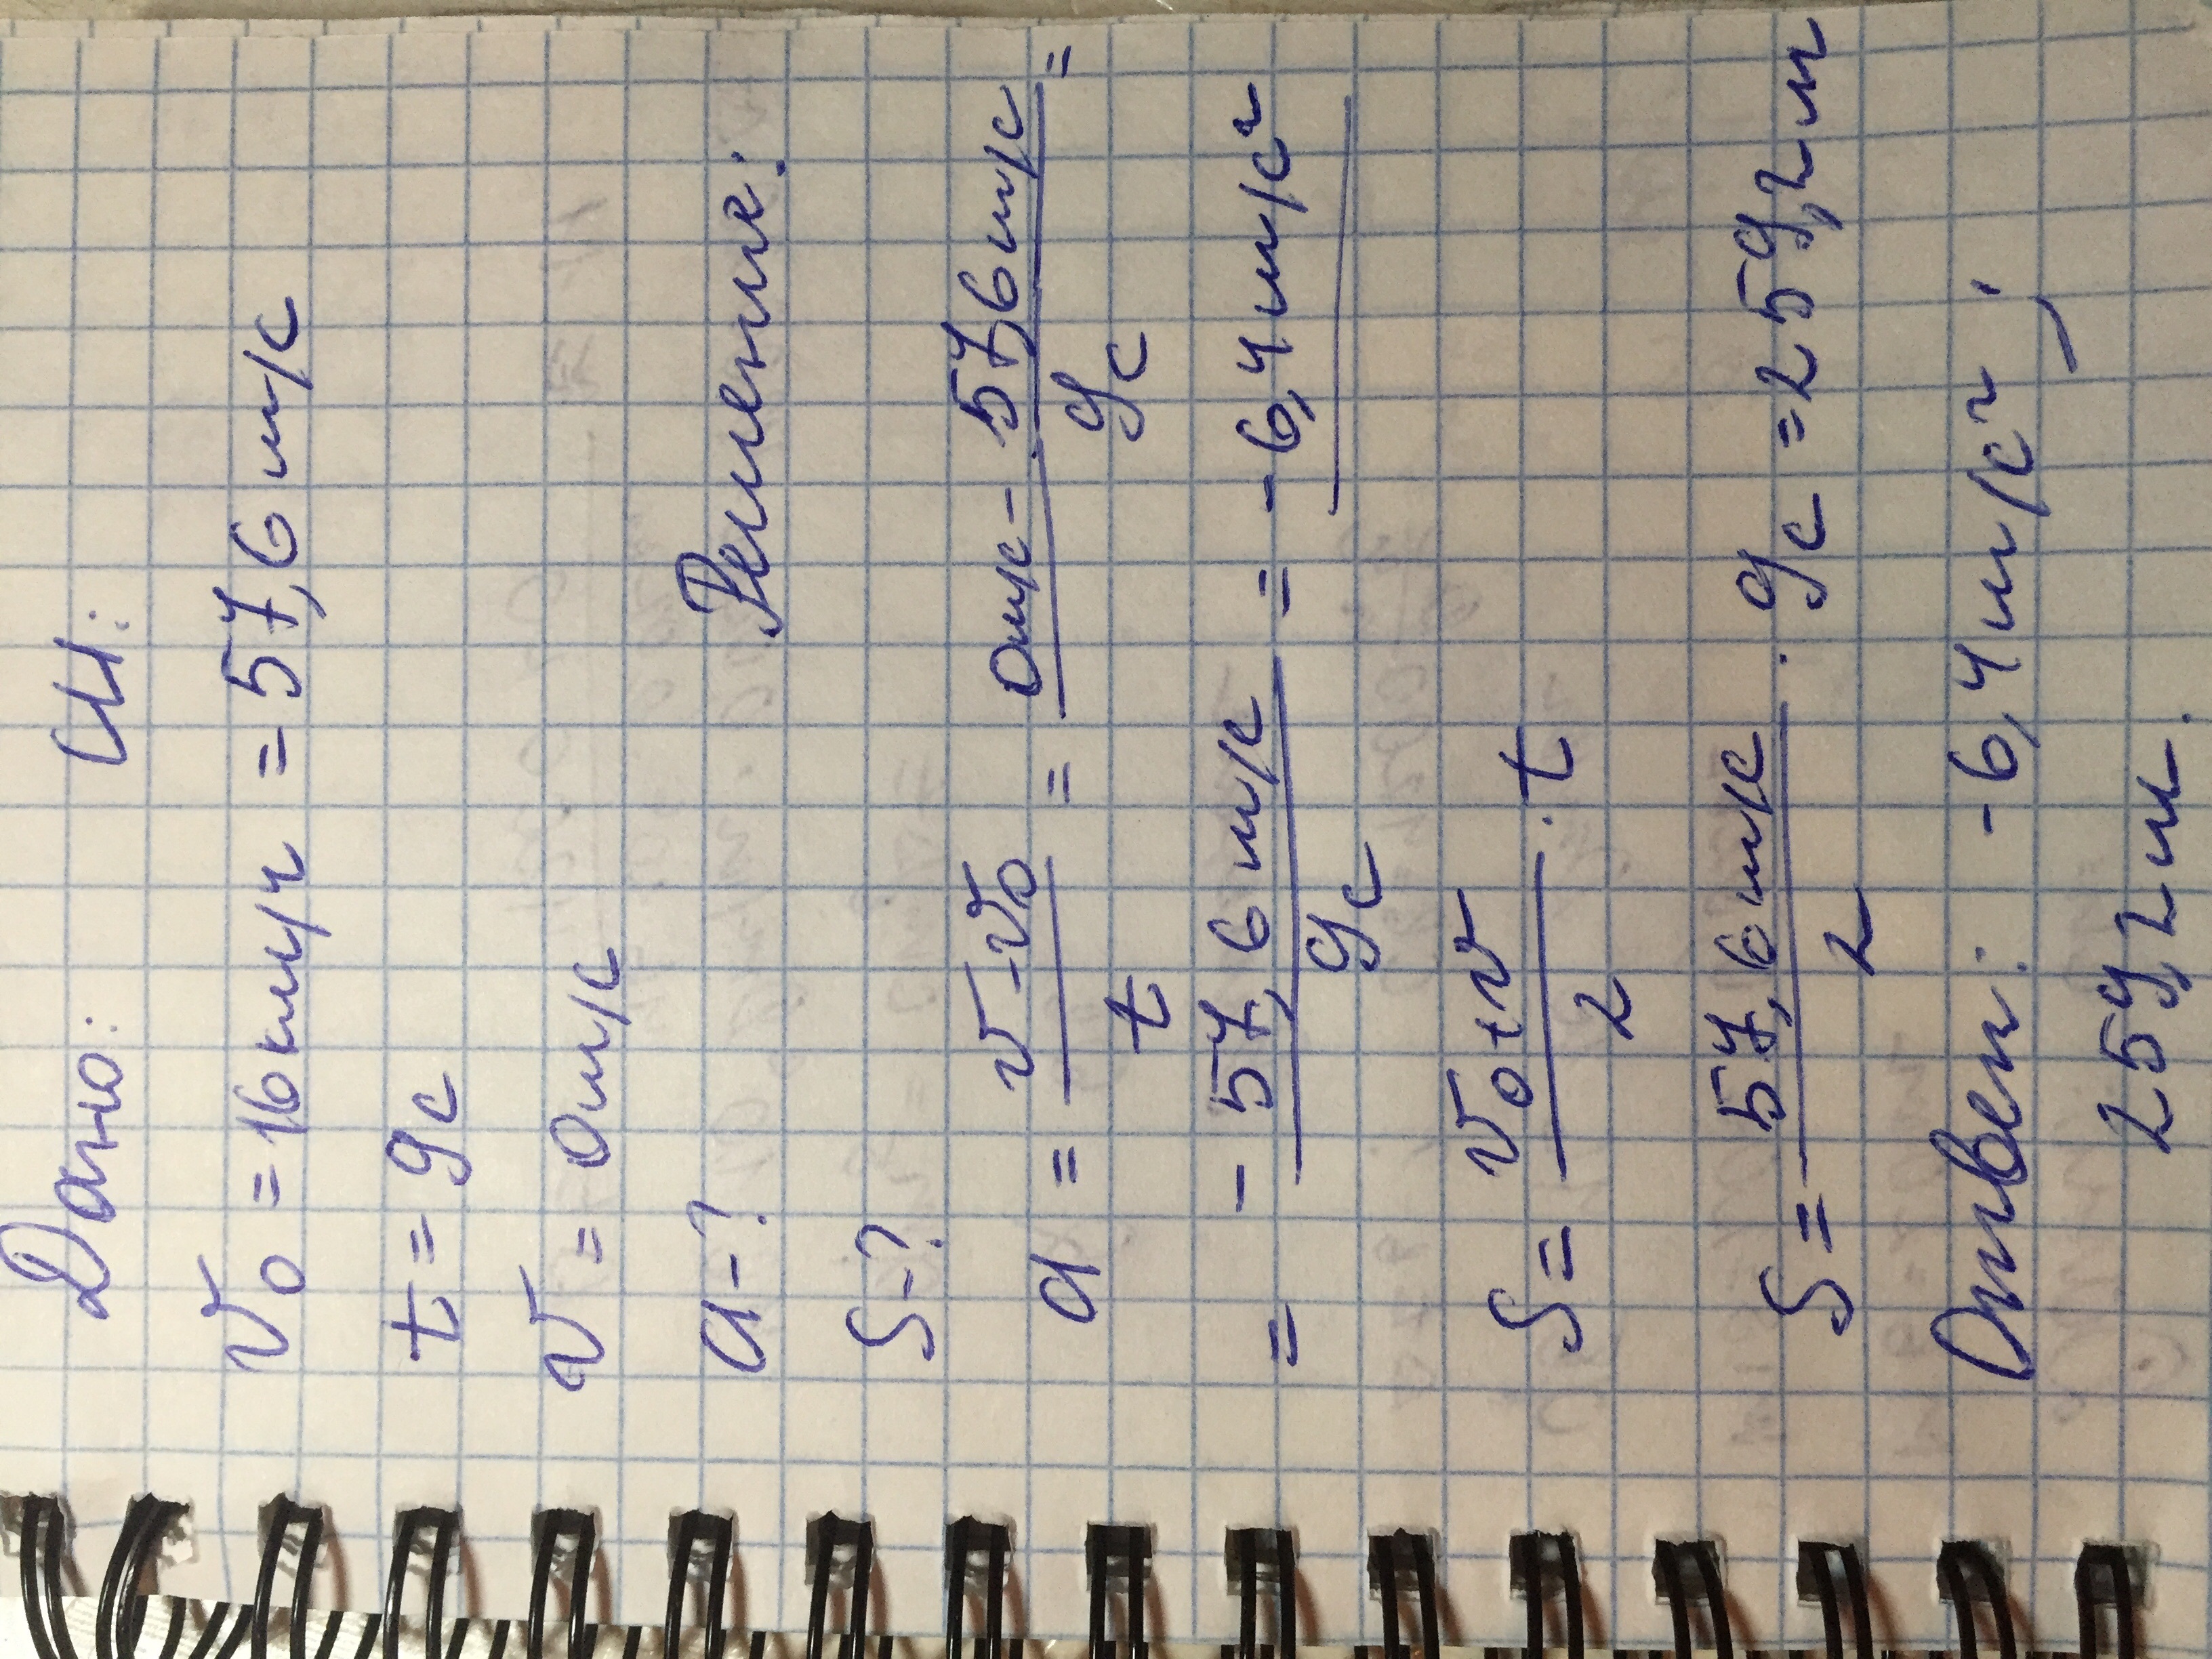 Дано: СИ:
v₀ = 16 км/ч = 57,6 м/с
t = 9с
v = 0 м/с
a - ?
Решение:
S - ?
a = (v - v₀)/t = (0м/с - 57,6 м/с)/9с =
= - 57,6 м/с / 9с = - 6,4 м/с²
S = (v₀ + v)/2 · t
S = 57,6 м/с / 2 · 9с = 259,2 м
Ответ: - 6,4 м/с² ;
259,2 м.